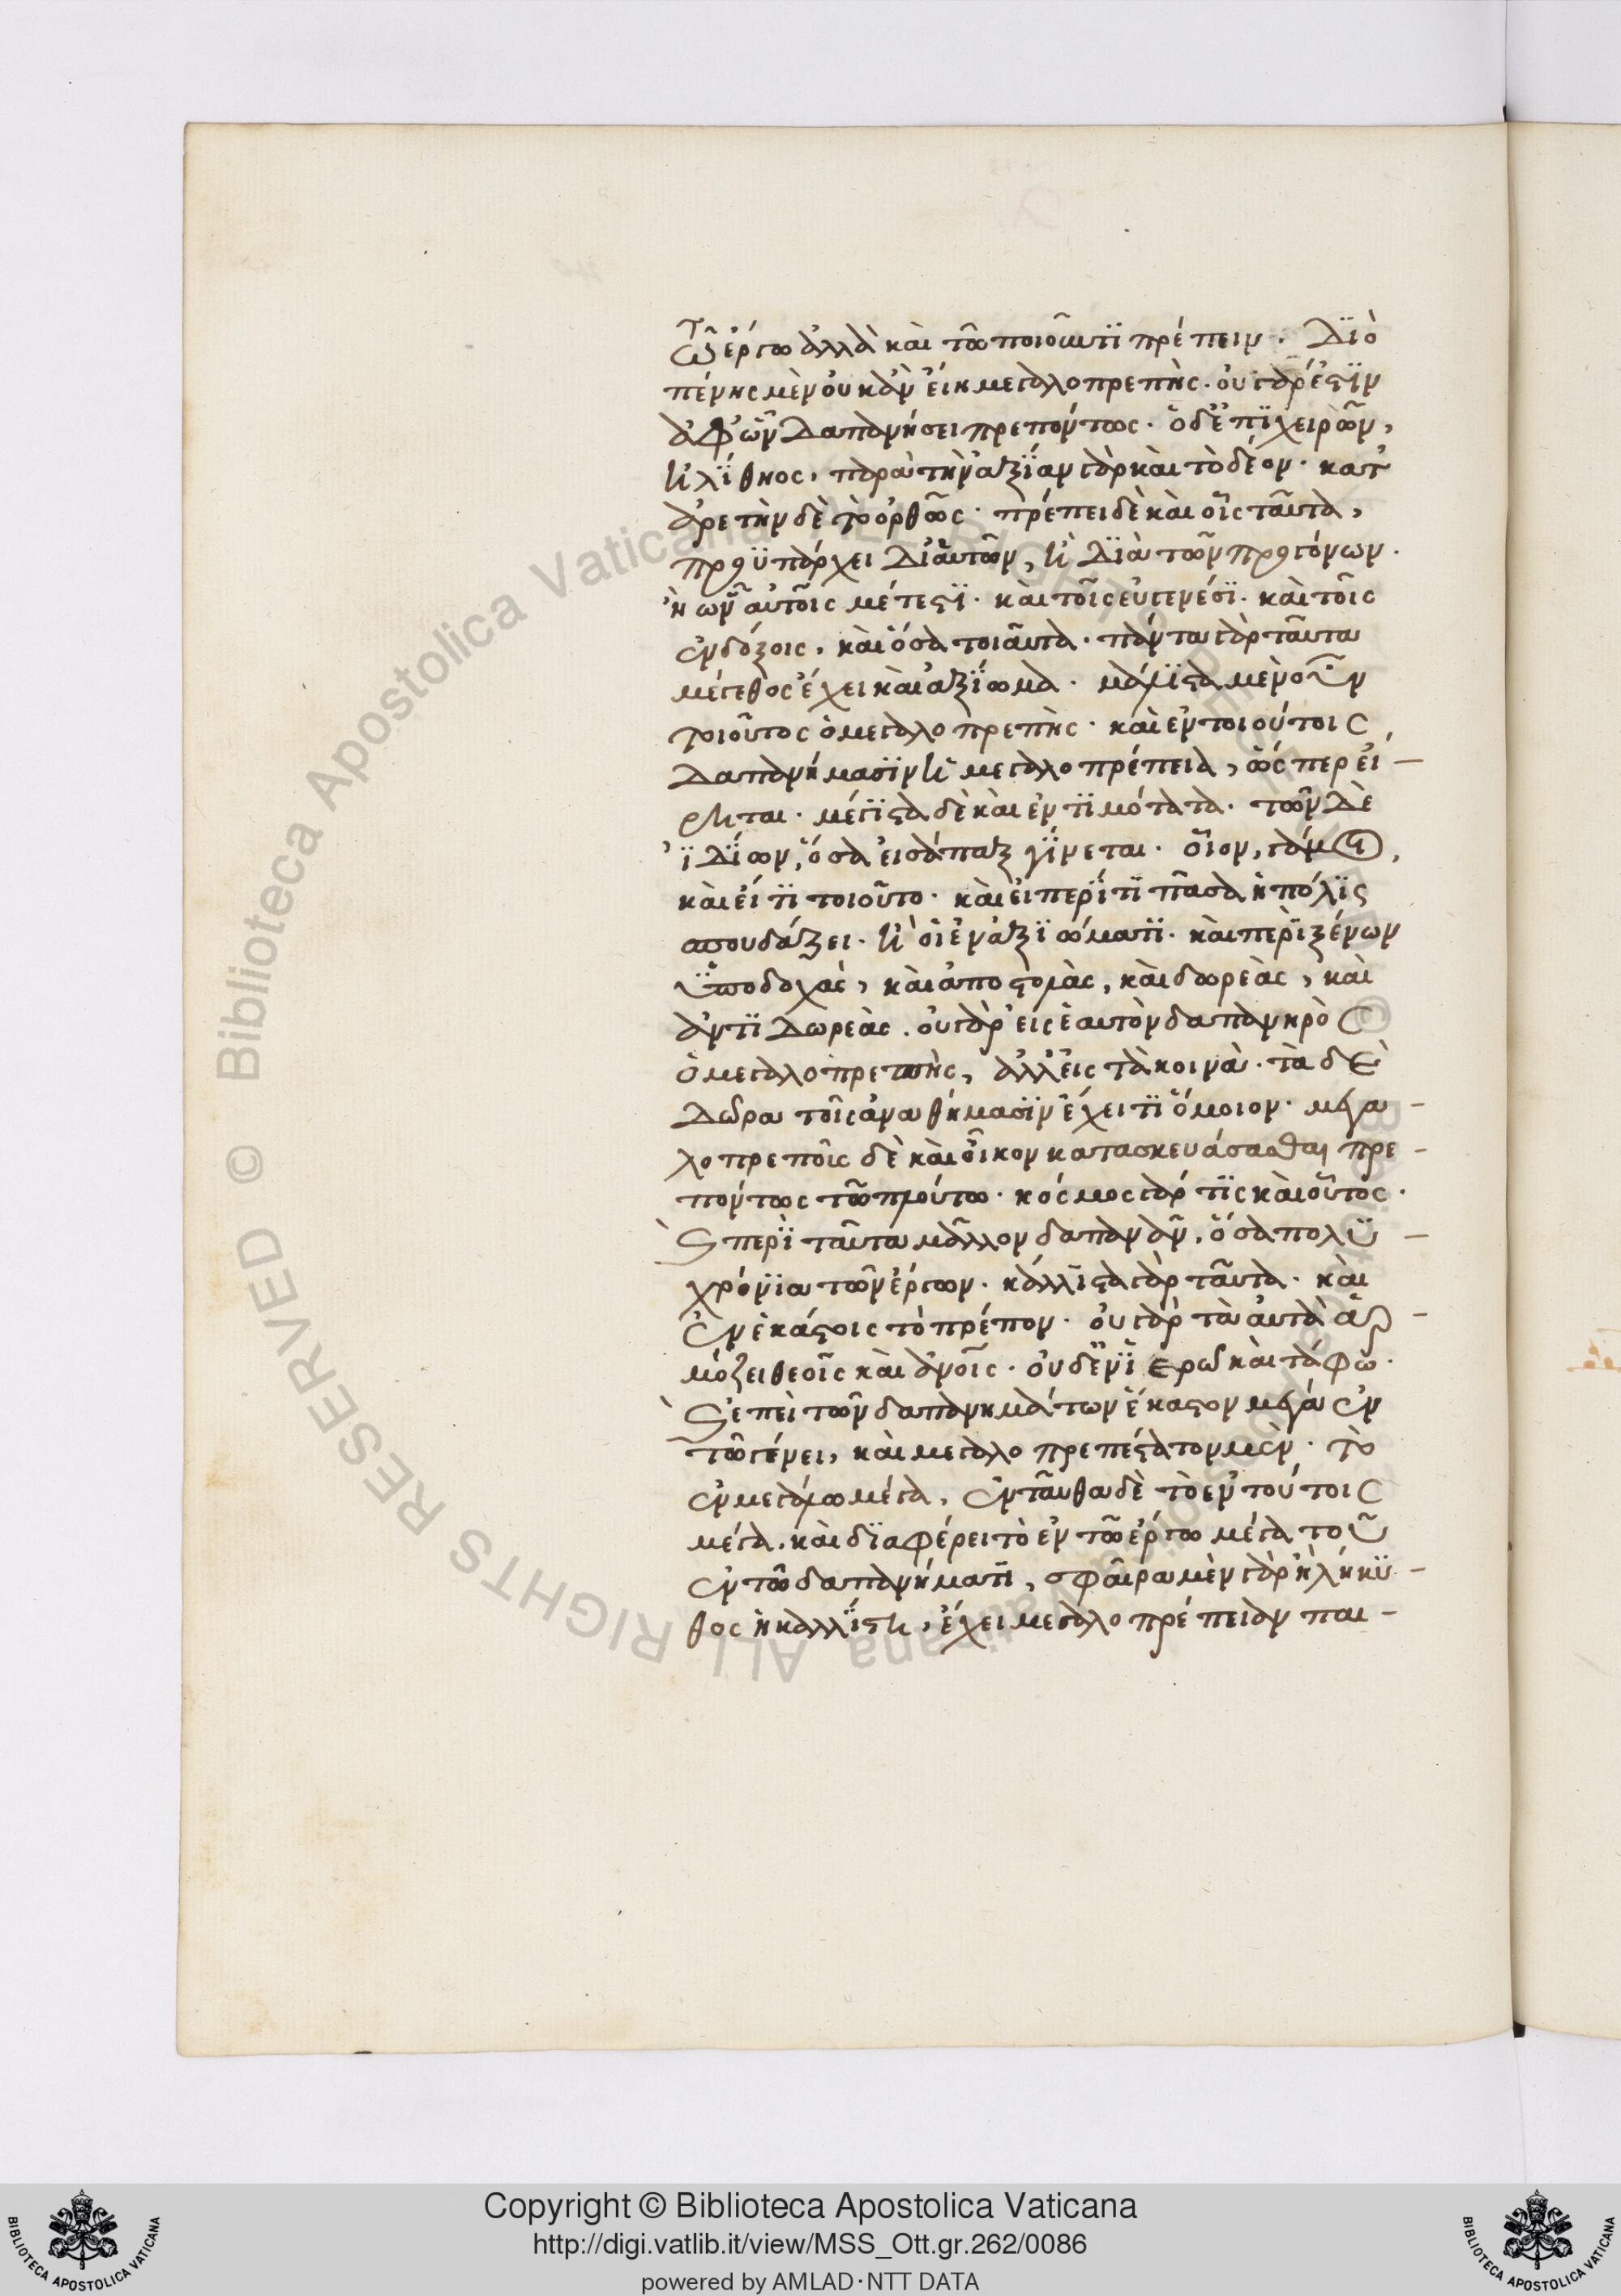 τῶ ἔργω ἀλλὰ καὶ τῶ ποιοῦντϊ πρέπειν. Δϊὸ
πένης μὲν οὐκ ἂν εἴη μεγαλοπρεπὴς. οὐ γάρ ἐστϊν
ἀφ' ὧν δαπανήσει πρεπόντως. ὁ δ' ἐπϊχειρῶν,
ἠλΐθιος, παρὰ τὴν ἀξΐαν γὰρ καὶ τὸ δέον. κατ'
ἀρετὴν δὲ τὸ ὀρθῶς. πρέπει δὲ καὶ οἷς ταῦτα,
προϋπάρχει δι' αὐτῶν, ἢ δϊὰ τῶν προγόνων.
ἢ ὧν αὐτοῖς μέτεστϊ. καὶ τοῖς εὐγενέσϊ. καὶ τοῖς
ἐνδόξοις, καὶ ὅσα τοιαῦτα. πάντα γὰρ ταῦτα
μέγεθος ἔχει καὶ ἀξΐωμα. μάλϊστα μὲν οὖν
τοιοῦτος ὁ μεγαλοπρεπὴς. καὶ ἐν τοιούτοις
δαπανήμασϊν ἡ μεγαλοπρέπεια, ὥσπερ εἴ-
ρηται. μέγϊστα δὲ καὶ ἐντϊμότατα. τῶν δὲ
ϊδΐων, ὅσα εἰσάπαξ γΐνεται. οἷον, γάμος,
καὶ εἴ τϊ τοιοῦτο. καὶ εἰ περΐ τϊ πᾶσα ἡ πόλϊς
σπουδάζει. ἢ οἱ ἐν ἀξϊώματϊ. καὶ περὶ ξένων
ὑποδοχὰς, καὶ ἀποστολὰς, καὶ δωρεὰς, καὶ
ἀντϊδωρεὰς. οὐ γὰρ εἰς ἑαυτὸν δαπανηρὸς
ὁ μεγαλοπρεπὴς, ἀλλ' εἰς τὰ κοινὰ. τὰ δὲ
δῶρα τοῖς ἀναθήμασϊν ἔχει τϊ ὅμοιον. μεγα-
λοπρεποῦς δὲ καὶ οἶκον κατασκευάσασθαι πρε-
πόντως τῶ πλούτω. κόσμος γάρ τϊς καὶ οὗτος.
καὶ περὶ ταῦτα μᾶλλον δαπανᾶν, ὅσα πολϋ-
χρόνϊα τῶν ἔργων. κάλλϊστα γὰρ ταῦτα. καὶ
ἐν ἑκάστοις τὸ πρέπον. οὐ γὰρ τὰ αὐτὰ ἁρ-
μόζει θεοῖς καὶ ἀνοῖς. οὐδ' ἐν ἱερῶ καὶ τάφω.
καὶ ἐπὶ τῶν δαπανημάτων ἕκαστον μέγα ἐν
τῶ γένει, καὶ μεγαλοπρεπέστατον μὲν. τὸ
ἐν μεγάλω μέγα, ἐνταῦθα δὲ τὸ ἐν τούτοις
μέγα. καὶ δϊαφέρει τὸ ἐν τῶ ἔργω μέγα τοῦ
ἐν τῶ δαπανήματϊ, σφαῖρα μὲν γὰρ ἢ λήκϋ-
θος ἡ καλλΐστη, ἔχει μεγαλοπρέπειαν παι-
Copyright © Biblioteca Apostolica Vaticana
http://digi.vatlib.it/view/MSS_Ott.gr.262/0086
powered by AMLAD·NTT DATA
BIBLIOTECA APOSTOLICA VATICANA
BIBLIOTECA APOSTOLICA VATICANA
© Biblioteca Apostolica Vaticana ALL RIGHTS RESERVED